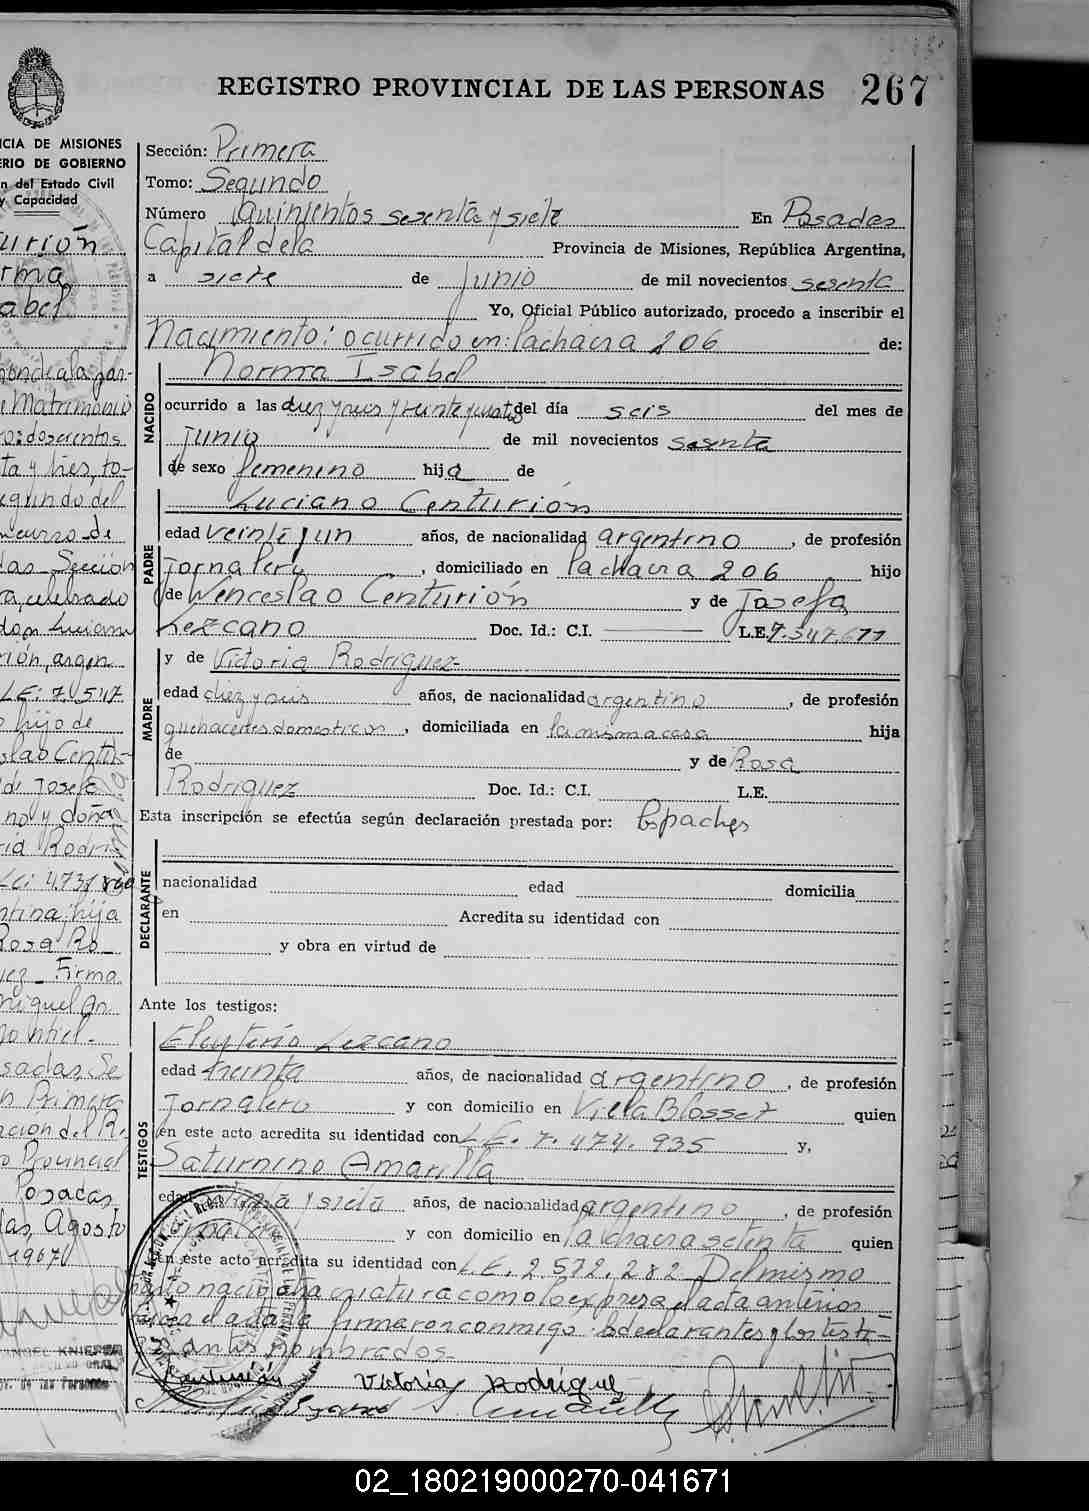 REGISTRO PROVINCIAL DE LAS PERSONAS 267
CIA DE MISIONES
ERIO DE GOBIERNO
n del Estado Civil
y Capacidad
urión
rma
abel
Matrimonio
doscientos
ta y tres, to-
egundo del
curso de
das Sección
ra, celebrado
don Luciano
rión, argen
LE: 7.547
hijo de
slao Centu-
de Josefa
no y doña
ria Rodri
ntina hija
Rosa Ro
uez - Firma
Miguel An
Montiel.-
sadas, Se
n Primera
o Provincial
Posadas
das, Agosto
1967
Sección: Primera
Tomo: Segundo
Número Quinientos sesenta y siete En Posadas
Capital de la Provincia de Misiones, República Argentina,
a siete de Junio de mil novecientos sesenta
Yo, Oficial Público autorizado, procedo a inscribir el
Nacimiento: ocurrido en: la chacra 206 de:
NACIDO
Norma Isabel
ocurrido a las del día seis del mes de
Junio de mil novecientos sesenta
de sexo femenino hija de
PADRE
Luciano Centurión
edad veintiun años, de nacionalidad argentino, de profesión
Jornalero, domiciliado en la chacra 206 hijo
de Wenceslao Centurión y de Josefa
Lezcano Doc. Id.: C.I. L.E. 7.547.677
MADRE
y de Victoria Rodriguez-
edad diez y seis años, de nacionalidad argentina, de profesión
quehaceres domesticos, domiciliada en la misma casa hija
de y de Rosa
Rodriguez Doc. Id.: C.I. L.E.
Esta inscripción se efectúa según declaración prestada por:
DECLARANTE
nacionalidad edad domicilia
en Acredita su identidad con
y obra en virtud de
Ante los testigos:
TESTIGOS
Eleuterio Lezcano
edad treinta años, de nacionalidad argentino, de profesión
Jornalero y con domicilio en Villa Blosset quien
en este acto acredita su identidad con L.E. 7.474.935 y,
Saturnino Amarilla
edad y siete años, de nacionalidad argentino, de profesión
y con domicilio en la chacra setenta quien
en este acto acredita su identidad con L.E. 2.572.282 Del mismo
nació otra criatura como lo expresa el acta anterior
el acta firmaron conmigo declarantes y los testi-
nombrados.-
Centurión Victoria Rodriguez
02_180219000270-041671